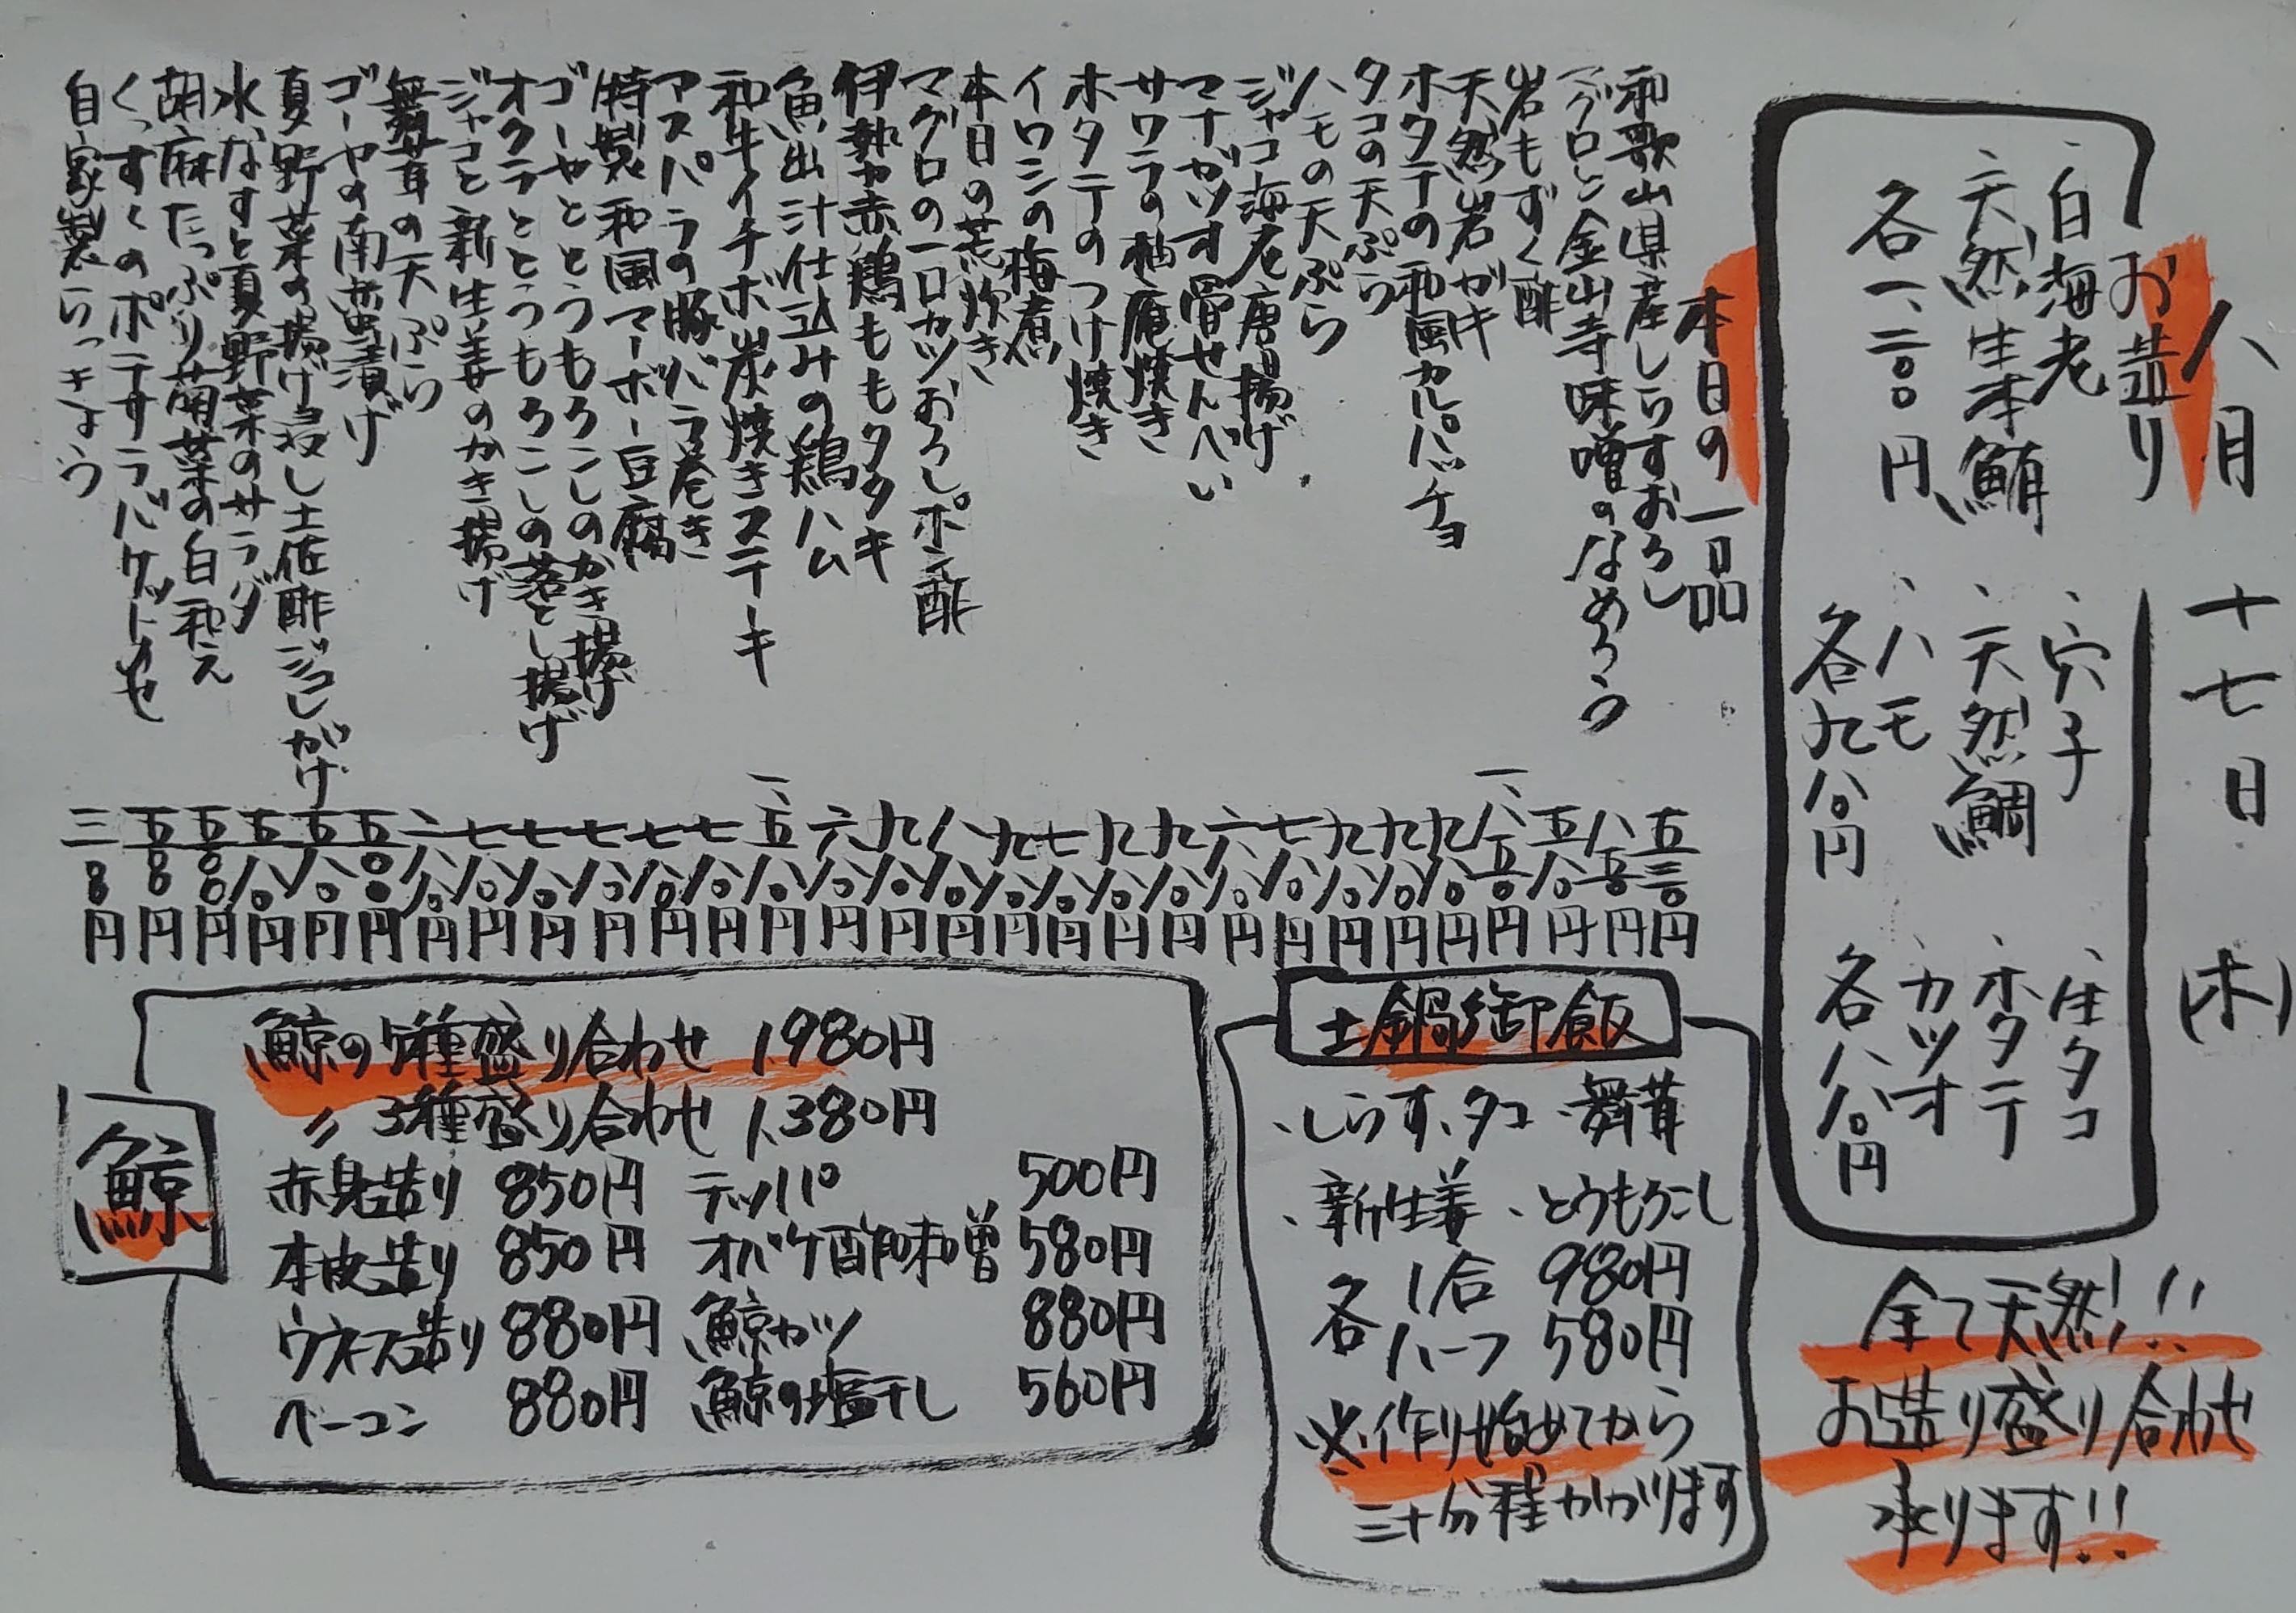 八月十七日(木)
お造り
、白海老
、天然生本鮪
各一、二〇〇円
、穴子
、天然鯛
、ハモ
各九八〇円
、生タコ
、ホタテ
、カツオ
各八八〇円
全て天然!!
お造り盛り合わせ
承ります!!
本日の一品
和歌山県産しらすおろし 五三〇円
マグロと金山寺味噌のなめろう 八五〇円
岩もずく酢 五八〇円
天然岩ガキ 一、八五〇円
ホタテの和風カルパッチョ 九八〇円
タコの天ぷら 九八〇円
ハモの天ぷら 九八〇円
ジャコ海老唐揚げ 七八〇円
マナガツオ骨せんべい 六八〇円
サワラの柚庵焼き 九八〇円
ホタテのつけ焼き 九八〇円
イワシの梅煮 七八〇円
本日の荒炊き 九八〇円
マグロの一口カツおろしポン酢 八八〇円
伊勢赤鶏ももタタキ 九八〇円
魚出汁仕込みの鶏ハム 六八〇円
和牛イチボ炭焼きステーキ 一、五八〇円
アスパラの豚バラ巻き 七八〇円
特製和風マーボー豆腐 七八〇円
ゴーヤととうもろこしのかき揚げ 七八〇円
オクラととうもろこしの落とし揚げ 七八〇円
ジャコと新生姜のかき揚げ 七八〇円
舞茸の天ぷら 六八〇円
ゴーヤの南蛮漬け 五〇〇円
夏野菜の揚げ浸し土佐酢ジュレがけ 五八〇円
水なすと夏野菜のサラダ 五八〇円
胡麻たっぷり菊菜の白和え 五〇〇円
くっすくのポテサラバゲットのせ 五〇〇円
自家製らっきょう 三〇〇円
土鍋御飯
、しらす、タコ、舞茸
、新生姜、とうもろこし
各 1合 980円
ハーフ 580円
※作り始めてから
三十分程かかります
鯨
鯨の5種盛り合わせ 1,980円
〃 3種盛り合わせ 1,380円
赤身造り 850円 テッパ 500円
本皮造り 850円 オバケ酢味噌 580円
ウネス造り 880円 鯨カツ 880円
ベーコン 880円 鯨の塩干し 560円